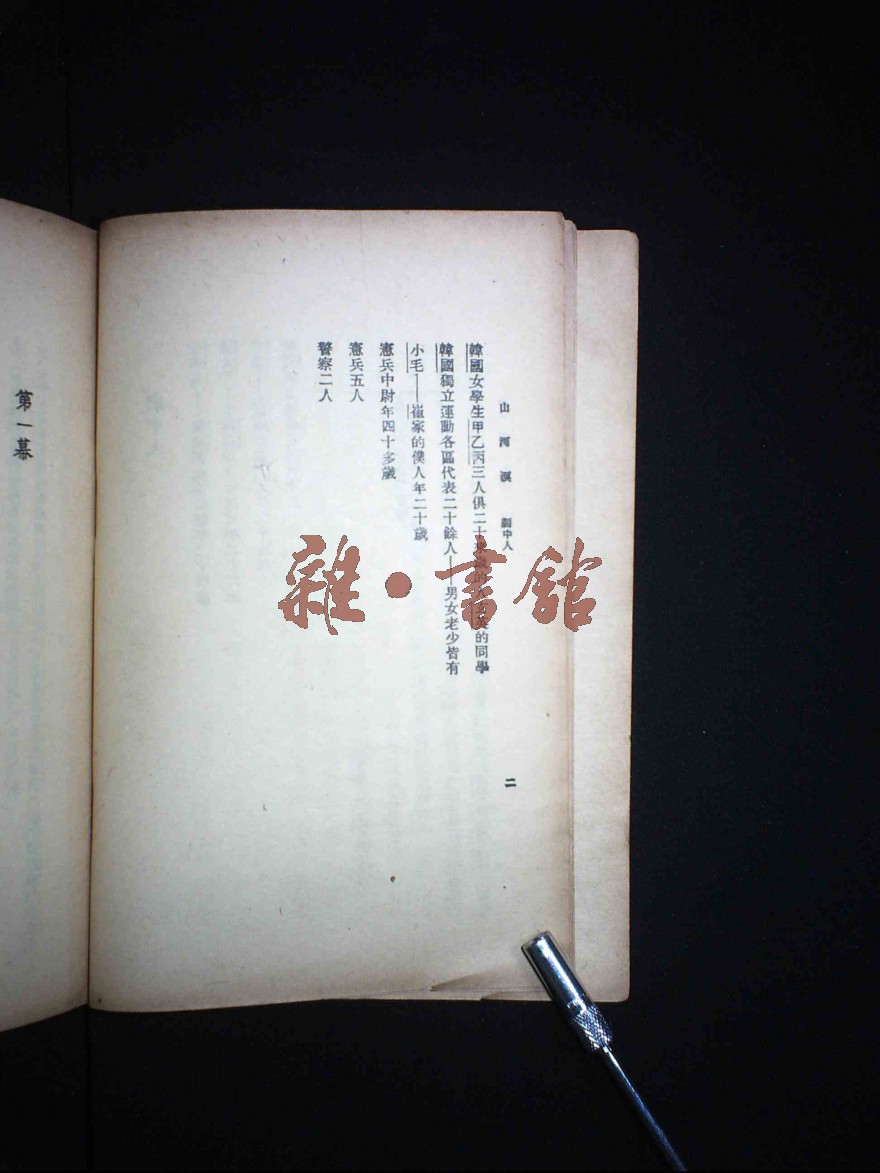 山河淚 劇中人
二
韓國女學生甲乙丙三人俱二十的同學
韓國獨立運動各區代表二十餘人——男女老少皆有
小毛——崔家的僕人年二十歲
憲兵中尉年四十多歲
憲兵五人
警察二人
第一幕
雜·書館